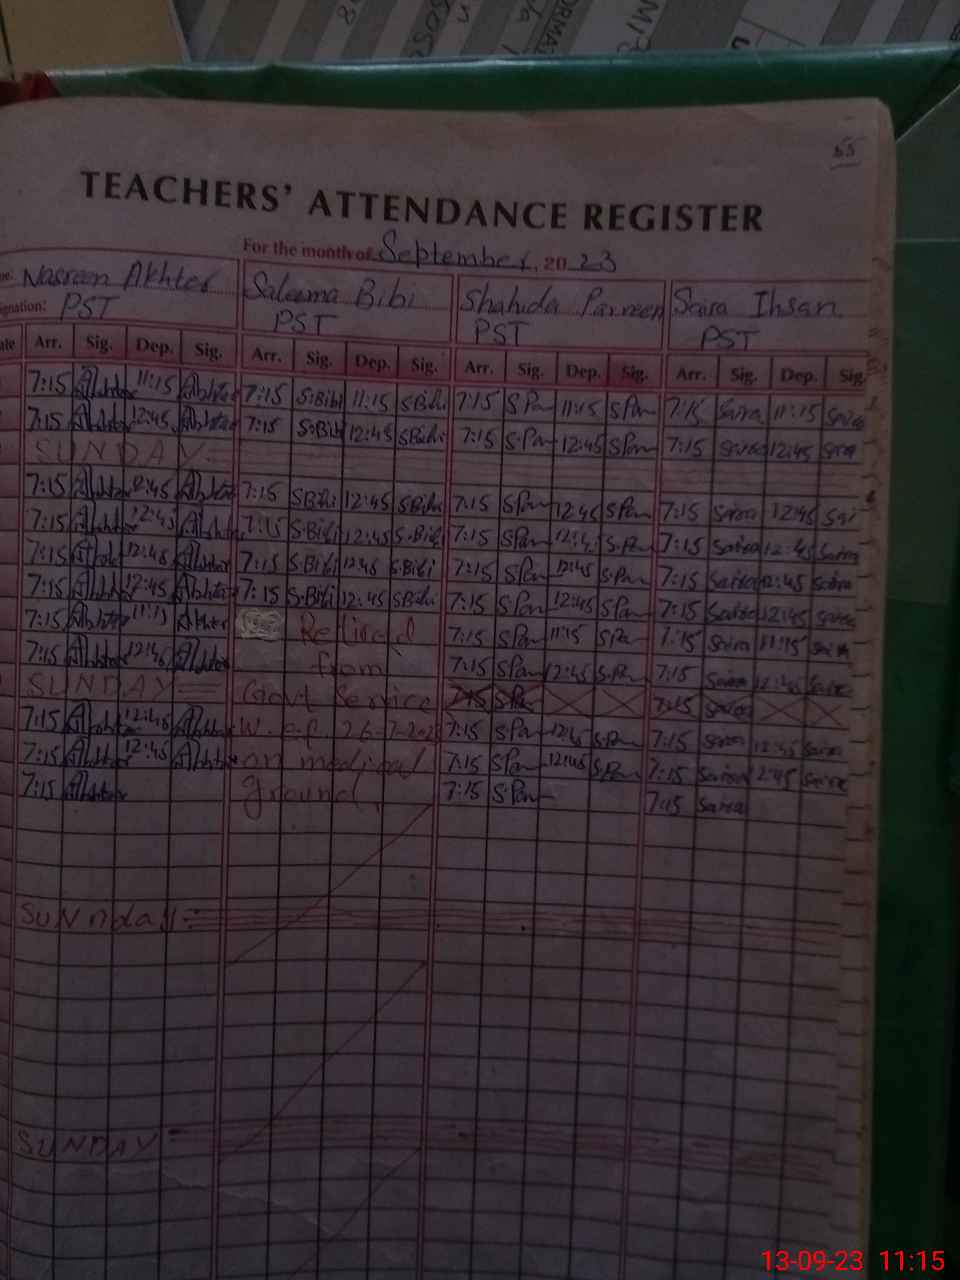 55
TEACHERS' ATTENDANCE REGISTER
For the month of September, 20 23
Nasreen Akhter Saleema Bibi Shahida Parveen Saira Ihsan
gnation: PST PST PST PST
ate Arr. Sig. Dep. Sig. Arr. Sig. Dep. Sig. Arr. Sig. Dep. Sig. Arr. Sig. Dep. Sig.
7:15 Akhter 11:15 Akhter 7:15 S.Bibi 11:15 S.Bibi 7:15 S Par 11:15 S Par 7:15 Saira 11:15 Saira
7:15 Akhter 12:45 Akhter 7:15 S.Bibi 12:45 S Bibi 7:15 S.Par 12:45 S Par 7:15 Saira 12:45 Saira
SUNDAY
7:15 Akhter 12:45 Akhter 7:15 S Bibi 12:45 S Bibi 7:15 S Par 12:45 S Par 7:15 Saira 12:45 Sai
7:15 Akhter 12:45 Akhter 7:15 S.Bibi 12:45 S.Bibi 7:15 S Par S.Par 7:15 Saira 12:45 Saira
7:15 12:45 Akhter 7:15 S.Bibi 12:45 S.Bibi 7:15 S Par 12:45 S.Par 7:15 Saira 12:45 Saira
7:15 Akhter 12:45 Akhter 7:15 S.Bibi 12:45 S Bibi 7:15 S Par 12:45 S.Par 7:15 Saira 12:45 Saira
7:15 Akhter 11:15 Akhter Retired 7:15 S Par 11:15 S Par 7:15 Saira 11:15 Saira
7:15 Akhter 12:45 Akhter from 7:15 S Par 12:45 S.Par 7:15 Saira 12:45 Saira
SUNDAY Govt Service 7:15 S Par 7:15 Saira
7:15 Akhter 12:45 Akhter W.e.f. 26-7-202 7:15 S Par 12:45 S Par 7:15 Saira 12:45 Saira
7:15 Akhter 12:45 Akhter on medical 7:15 S Par 12:45 S.Par 7:15 Saira 2:45 Saira
7:15 Akhter ground. 7:15 S Par 7:15 Saira
SUNnday
SUNDAY
13-09-23 11:15